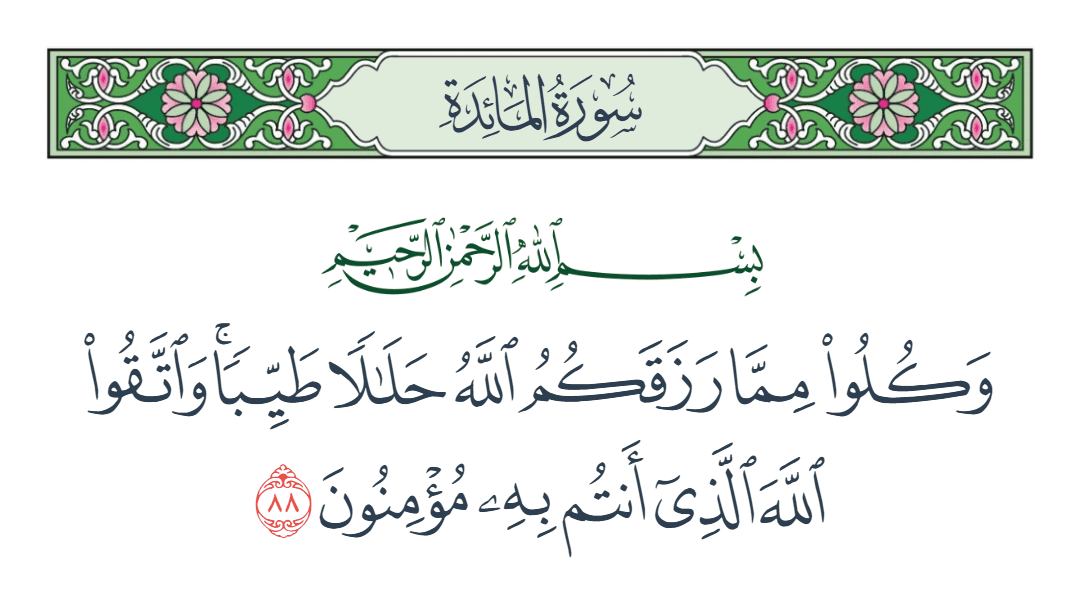 سُورَةُ المَائِدَةِ
بِسْمِ ٱللَّهِ ٱلرَّحْمَٰنِ ٱلرَّحِيمِ
وَكُلُوا۟ مِمَّا رَزَقَكُمُ ٱللَّهُ حَلَٰلًا طَيِّبًا ۚ وَٱتَّقُوا۟
ٱللَّهَ ٱلَّذِىٓ أَنتُم بِهِۦ مُؤْمِنُونَ ٨٨